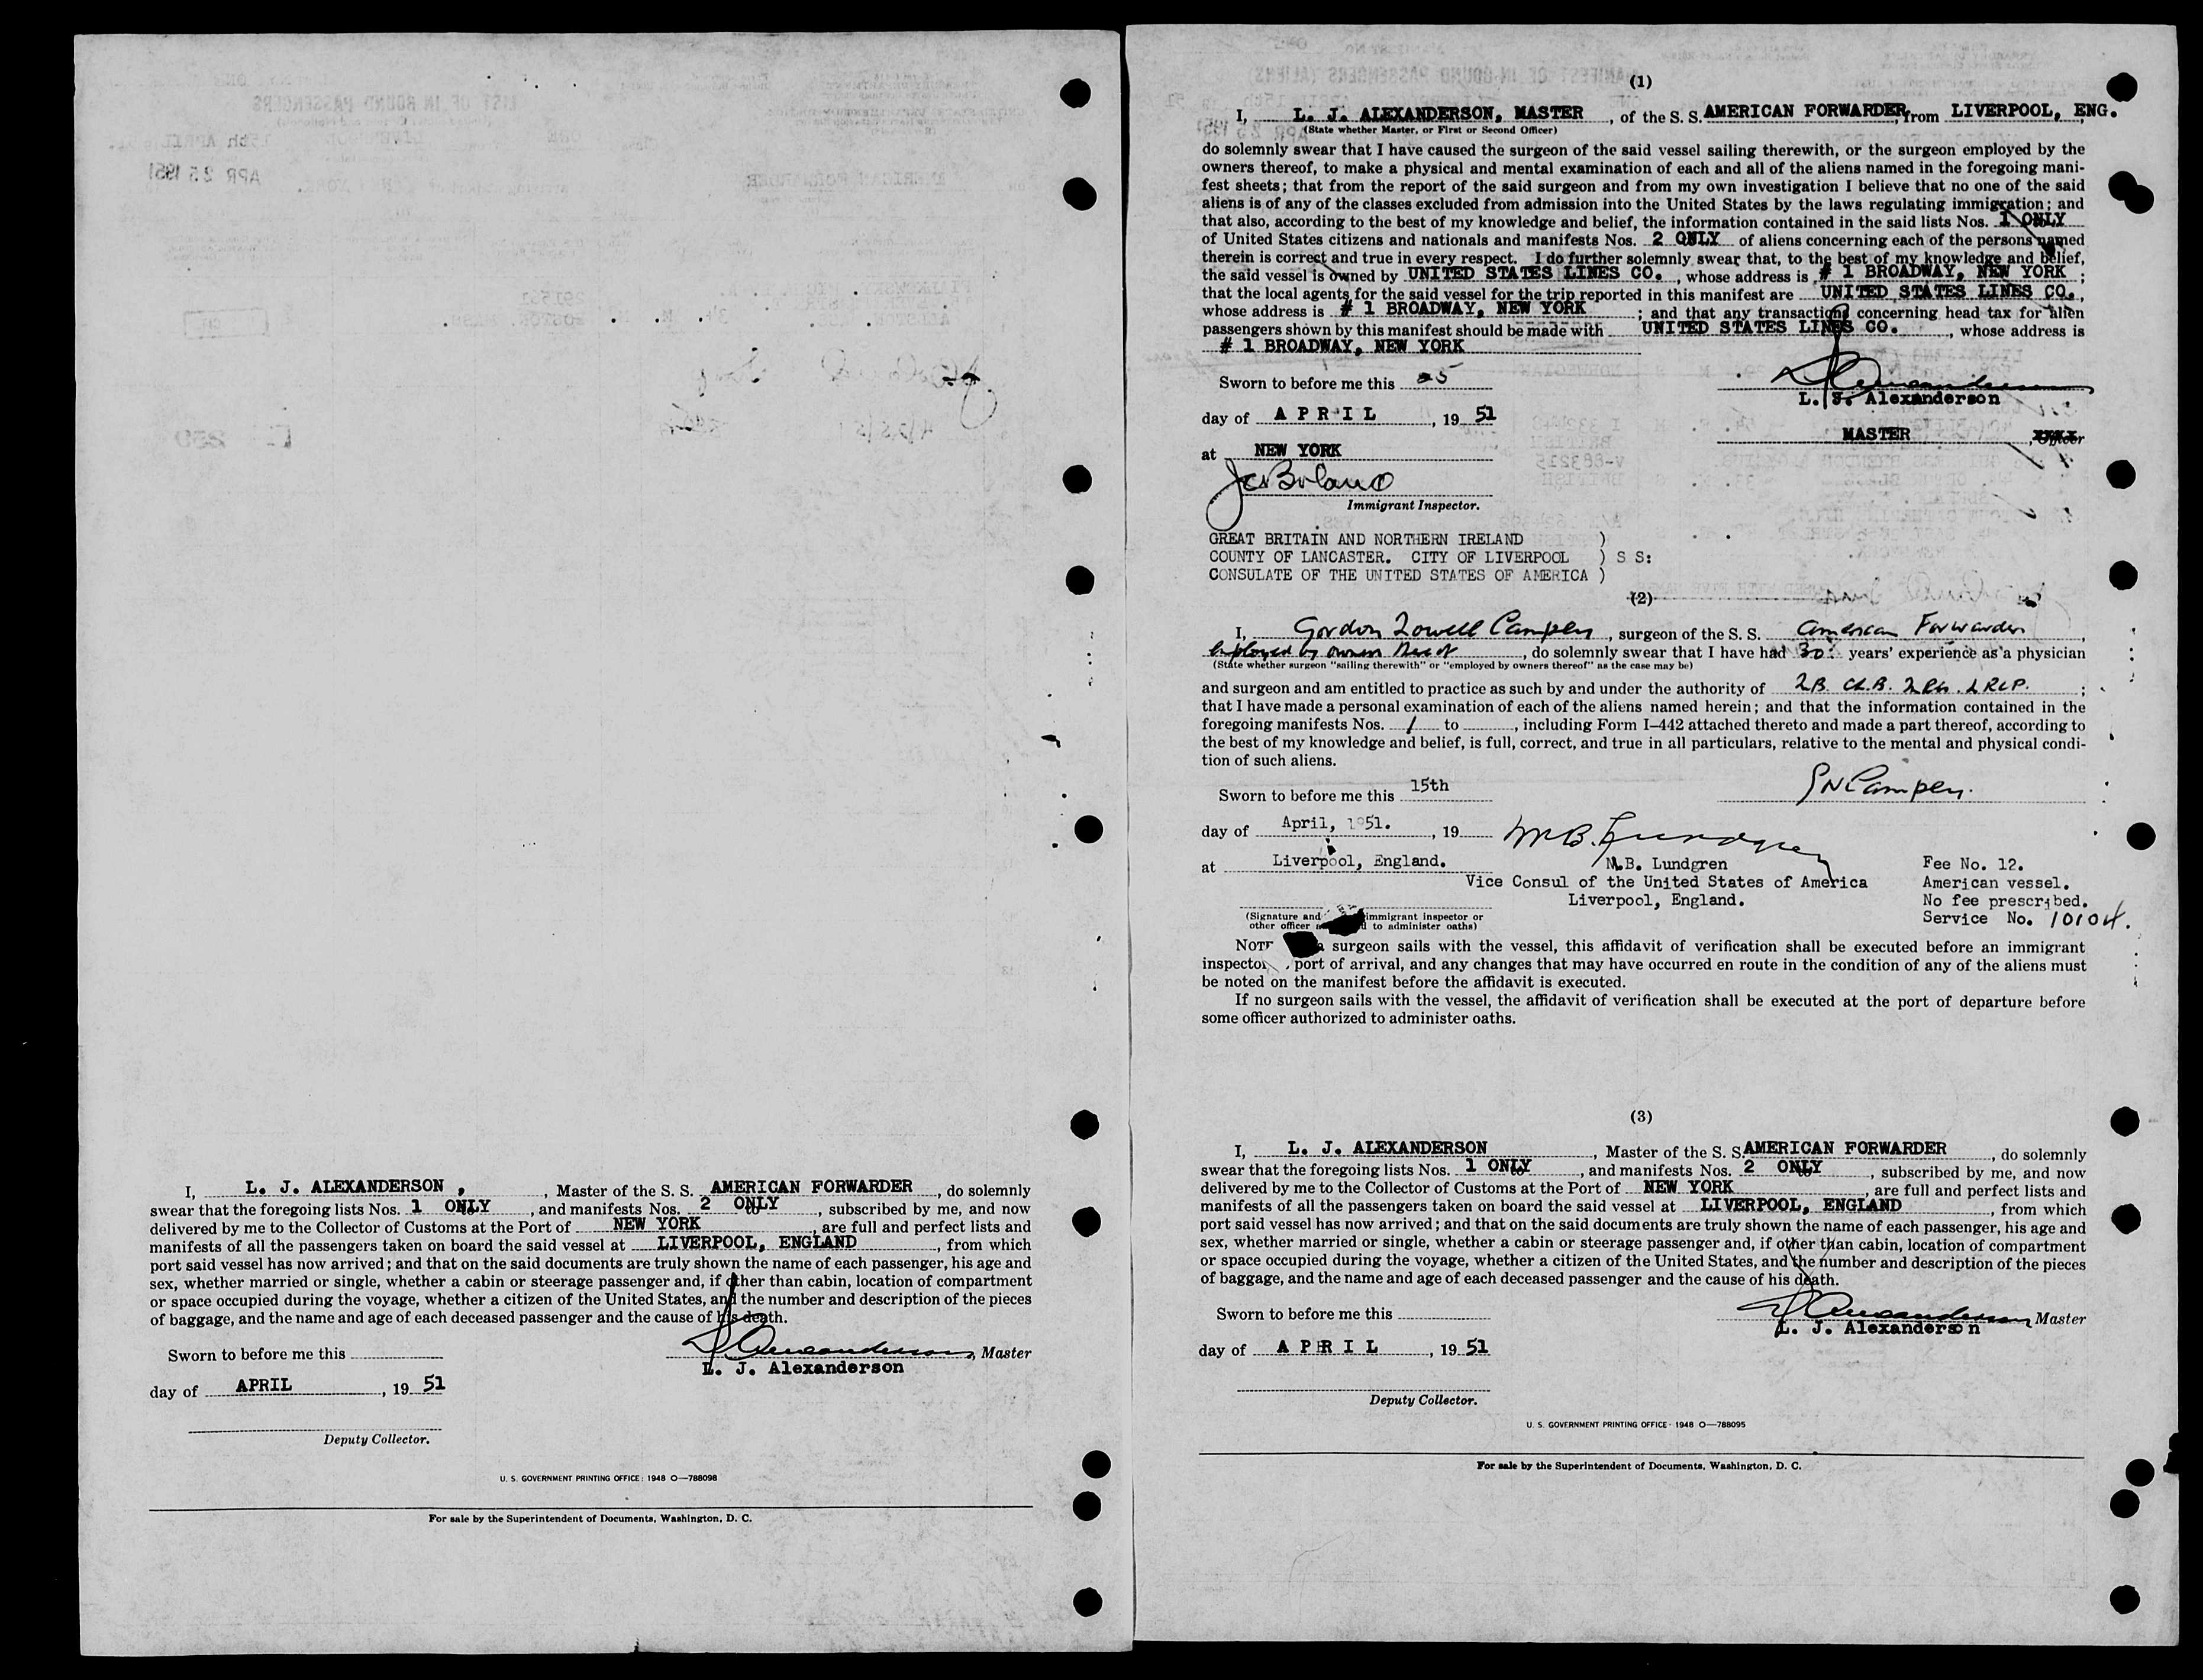 I, L. J. ALEXANDERSON , , Master of the S. S. AMERICAN FORWARDER , do solemnly
swear that the foregoing lists Nos. 1 ONLY , and manifests Nos. 2 ONLY , subscribed by me, and now
delivered by me to the Collector of Customs at the Port of NEW YORK , are full and perfect lists and
manifests of all the passengers taken on board the said vessel at LIVERPOOL, ENGLAND , from which
port said vessel has now arrived; and that on the said documents are truly shown the name of each passenger, his age and
sex, whether married or single, whether a cabin or steerage passenger and, if other than cabin, location of compartment
or space occupied during the voyage, whether a citizen of the United States, and the number and description of the pieces
of baggage, and the name and age of each deceased passenger and the cause of his death.
Sworn to before me this
, Master
L. J. Alexanderson
day of APRIL , 19 51
Deputy Collector.
U. S. GOVERNMENT PRINTING OFFICE: 1948 O—788098
For sale by the Superintendent of Documents, Washington, D. C.
(1)
I, L. J. ALEXANDERSON, MASTER , of the S. S. AMERICAN FORWARDER, from LIVERPOOL, ENG.
(State whether Master, or First or Second Officer)
do solemnly swear that I have caused the surgeon of the said vessel sailing therewith, or the surgeon employed by the
owners thereof, to make a physical and mental examination of each and all of the aliens named in the foregoing mani-
fest sheets; that from the report of the said surgeon and from my own investigation I believe that no one of the said
aliens is of any of the classes excluded from admission into the United States by the laws regulating immigration; and
that also, according to the best of my knowledge and belief, the information contained in the said lists Nos. 1 ONLY
of United States citizens and nationals and manifests Nos. 2 ONLY of aliens concerning each of the persons named
therein is correct and true in every respect. I do further solemnly swear that, to the best of my knowledge and belief,
the said vessel is owned by UNITED STATES LINES CO. , whose address is # 1 BROADWAY, NEW YORK ;
that the local agents for the said vessel for the trip reported in this manifest are UNITED STATES LINES CO.,
whose address is # 1 BROADWAY, NEW YORK ; and that any transactions concerning head tax for alien
passengers shown by this manifest should be made with UNITED STATES LINES CO. , whose address is
# 1 BROADWAY, NEW YORK
Sworn to before me this 25
L. J. Alexanderson
day of APRIL , 19 51
MASTER , Officer
at NEW YORK
Immigrant Inspector.
GREAT BRITAIN AND NORTHERN IRELAND )
COUNTY OF LANCASTER. CITY OF LIVERPOOL ) S S:
CONSULATE OF THE UNITED STATES OF AMERICA )
(2)
I, Gordon Lowell Campen , surgeon of the S. S. American Forwarder ,
employed by owners thereof , do solemnly swear that I have had 30 years' experience as a physician
(State whether surgeon "sailing therewith" or "employed by owners thereof" as the case may be)
and surgeon and am entitled to practice as such by and under the authority of ;
that I have made a personal examination of each of the aliens named herein; and that the information contained in the
foregoing manifests Nos. 1 to , including Form I-442 attached thereto and made a part thereof, according to
the best of my knowledge and belief, is full, correct, and true in all particulars, relative to the mental and physical condi-
tion of such aliens.
Sworn to before me this 15th
day of April, 1951. , 19
at Liverpool, England.
M.B. Lundgren
Vice Consul of the United States of America
Liverpool, England.
Fee No. 12.
American vessel.
No fee prescribed.
Service No. 10104.
(Signature and immigrant inspector or
other officer to administer oaths)
NOTE a surgeon sails with the vessel, this affidavit of verification shall be executed before an immigrant
inspector port of arrival, and any changes that may have occurred en route in the condition of any of the aliens must
be noted on the manifest before the affidavit is executed.
If no surgeon sails with the vessel, the affidavit of verification shall be executed at the port of departure before
some officer authorized to administer oaths.
(3)
I, L. J. ALEXANDERSON , Master of the S. S. AMERICAN FORWARDER , do solemnly
swear that the foregoing lists Nos. 1 ONLY , and manifests Nos. 2 ONLY , subscribed by me, and now
delivered by me to the Collector of Customs at the Port of NEW YORK , are full and perfect lists and
manifests of all the passengers taken on board the said vessel at LIVERPOOL, ENGLAND , from which
port said vessel has now arrived; and that on the said documents are truly shown the name of each passenger, his age and
sex, whether married or single, whether a cabin or steerage passenger and, if other than cabin, location of compartment
or space occupied during the voyage, whether a citizen of the United States, and the number and description of the pieces
of baggage, and the name and age of each deceased passenger and the cause of his death.
Sworn to before me this
Master
L. J. Alexanderson
day of APRIL , 19 51
Deputy Collector.
U. S. GOVERNMENT PRINTING OFFICE: 1948 O—788095
For sale by the Superintendent of Documents, Washington, D. C.